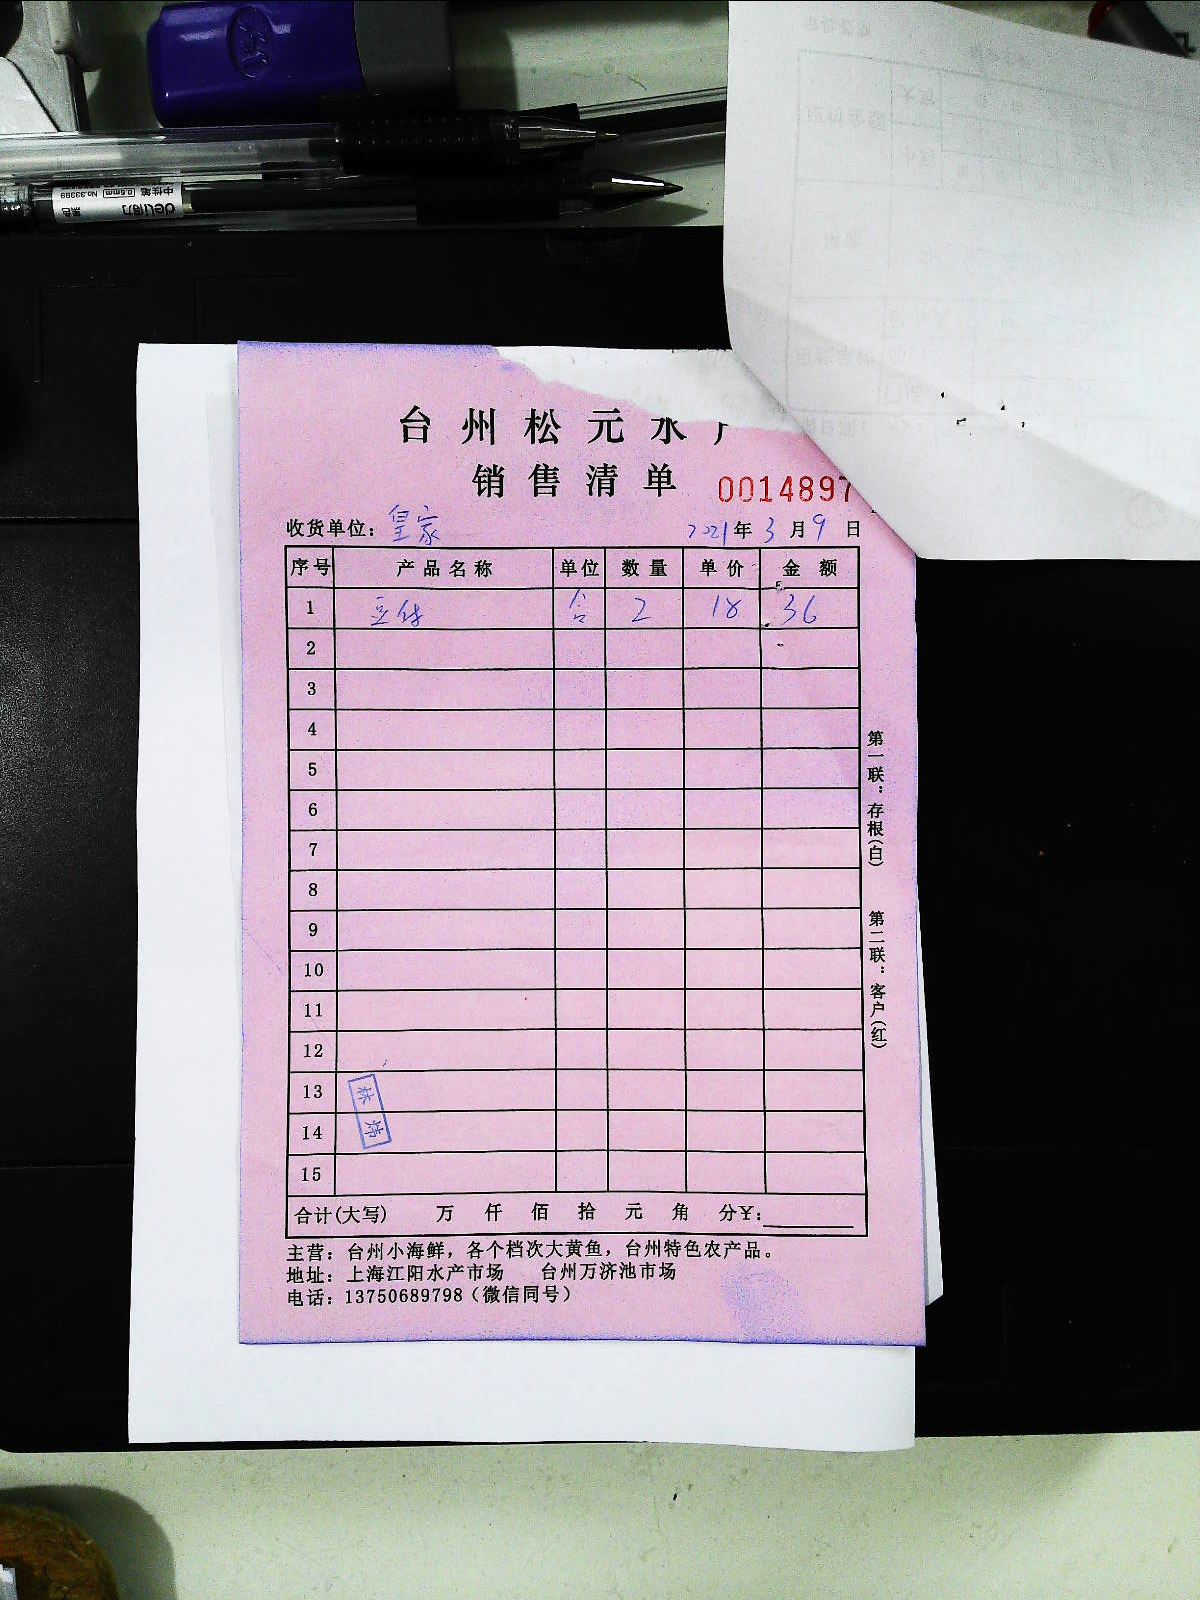 deli得力
中性笔
0.5mm
No.33399
黑色
台州松元水产
销售清单
0014897
收货单位：皇家
2021年3月9日
序号 产品名称 单位 数量 单价 金额
1 豆付 合 2 18 36
2
3
4
5
6
7
8
9
10
11
12
13
14
15
林炜
合计(大写) 万 仟 佰 拾 元 角 分¥：
第一联：存根(白)
第二联：客户(红)
主营：台州小海鲜，各个档次大黄鱼，台州特色农产品。
地址：上海江阳水产市场 台州万济池市场
电话：13750689798（微信同号）